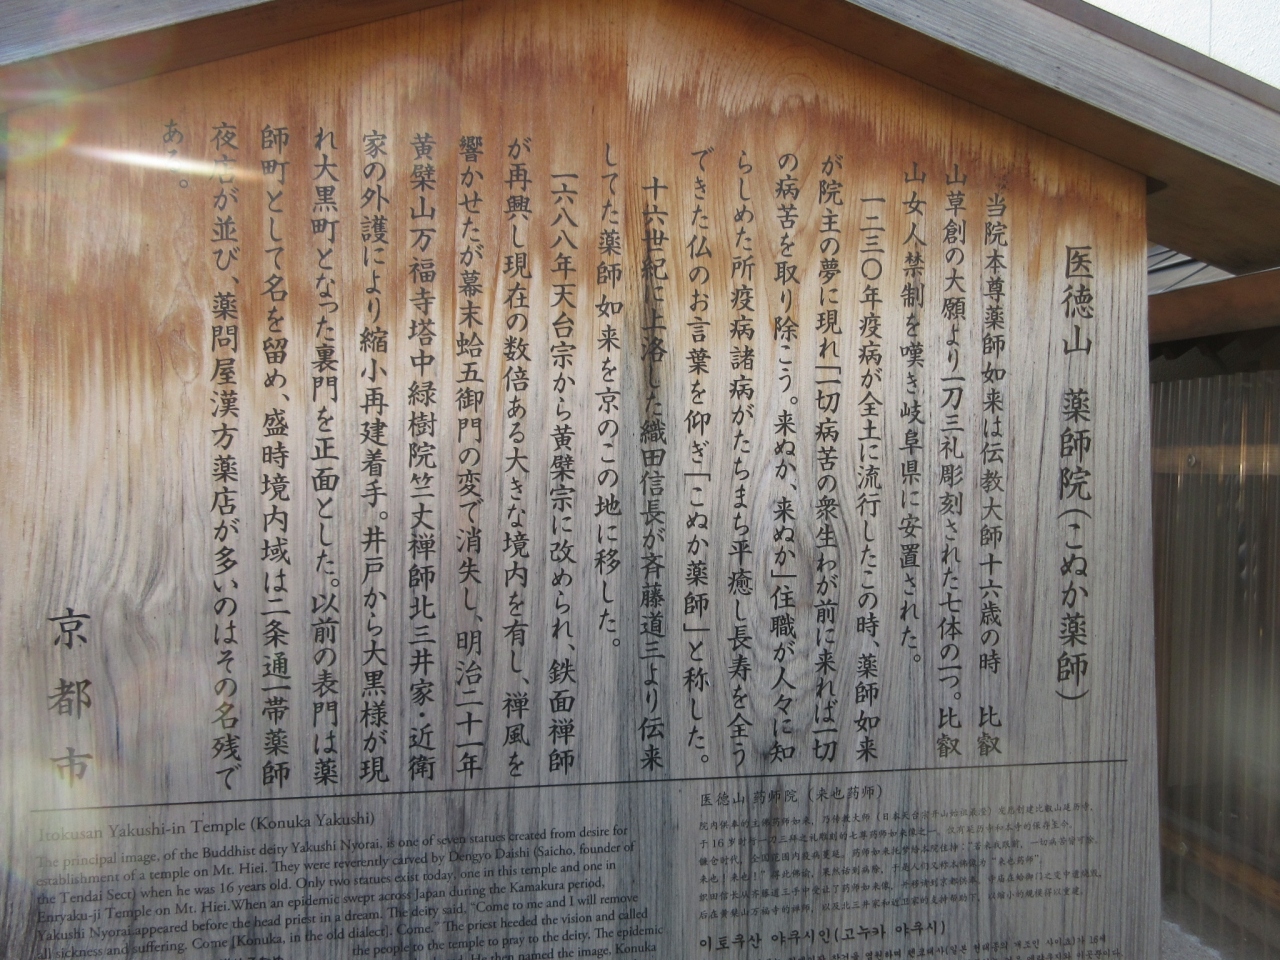 医徳山 薬師院(こぬか薬師)
当院本尊薬師如来は伝教大師十六歳の時 比叡
山草創の大願より一刀三礼彫刻された七体の一つ。比叡
山女人禁制を嘆き岐阜県に安置された。
一二三〇年疫病が全土に流行したこの時、薬師如来
が院主の夢に現れ「一切病苦の衆生わが前に来れば一切
の病苦を取り除こう。来ぬか、来ぬか」住職が人々に知
らしめた所疫病諸病がたちまち平癒し長寿を全う
できた仏のお言葉を仰ぎ「こぬか薬師」と称した。
十六世紀に上洛した織田信長が斉藤道三より伝来
してた薬師如来を京のこの地に移した。
一六八八年天台宗から黄檗宗に改められ、鉄面禅師
が再興し現在の数倍ある大きな境内を有し、禅風を
響かせたが幕末蛤五御門の変で消失し、明治二十一年
黄檗山万福寺塔中緑樹院竺丈禅師北三井家・近衛
家の外護により縮小再建着手。井戸から大黒様が現
れ大黒町となった裏門を正面とした。以前の表門は薬
師町として名を留め、盛時境内域は二条通一帯薬師
夜店が並び、薬問屋漢方薬店が多いのはその名残で
ある。
京都市
Itokusan Yakushi-in Temple (Konuka Yakushi)
The principal image, of the Buddhist deity Yakushi Nyorai, is one of seven statues created from desire for
establishment of a temple on Mt. Hiei. They were reverently carved by Dengyo Daishi (Saicho, founder of
the Tendai Sect) when he was 16 years old. Only two statues exist today, one in this temple and one in
Enryaku-ji Temple on Mt. Hiei. When an epidemic swept across Japan during the Kamakura period,
Yakushi Nyorai appeared before the head priest in a dream. The deity said, "Come to me and I will remove
all sickness and suffering. Come [Konuka, in the old dialect]. Come." The priest heeded the vision and called
the people to the temple to pray to the deity. The epidemic
He then named the image, Konuka
医德山 药师院（来也药师）
院内供奉的主佛药师如来，乃传教大师（日本天台宗开山始祖最澄）发愿创建比叡山延历寺，
于16岁时
来也！来也！"
이토쿠산 야쿠시인(고누카 야쿠시)